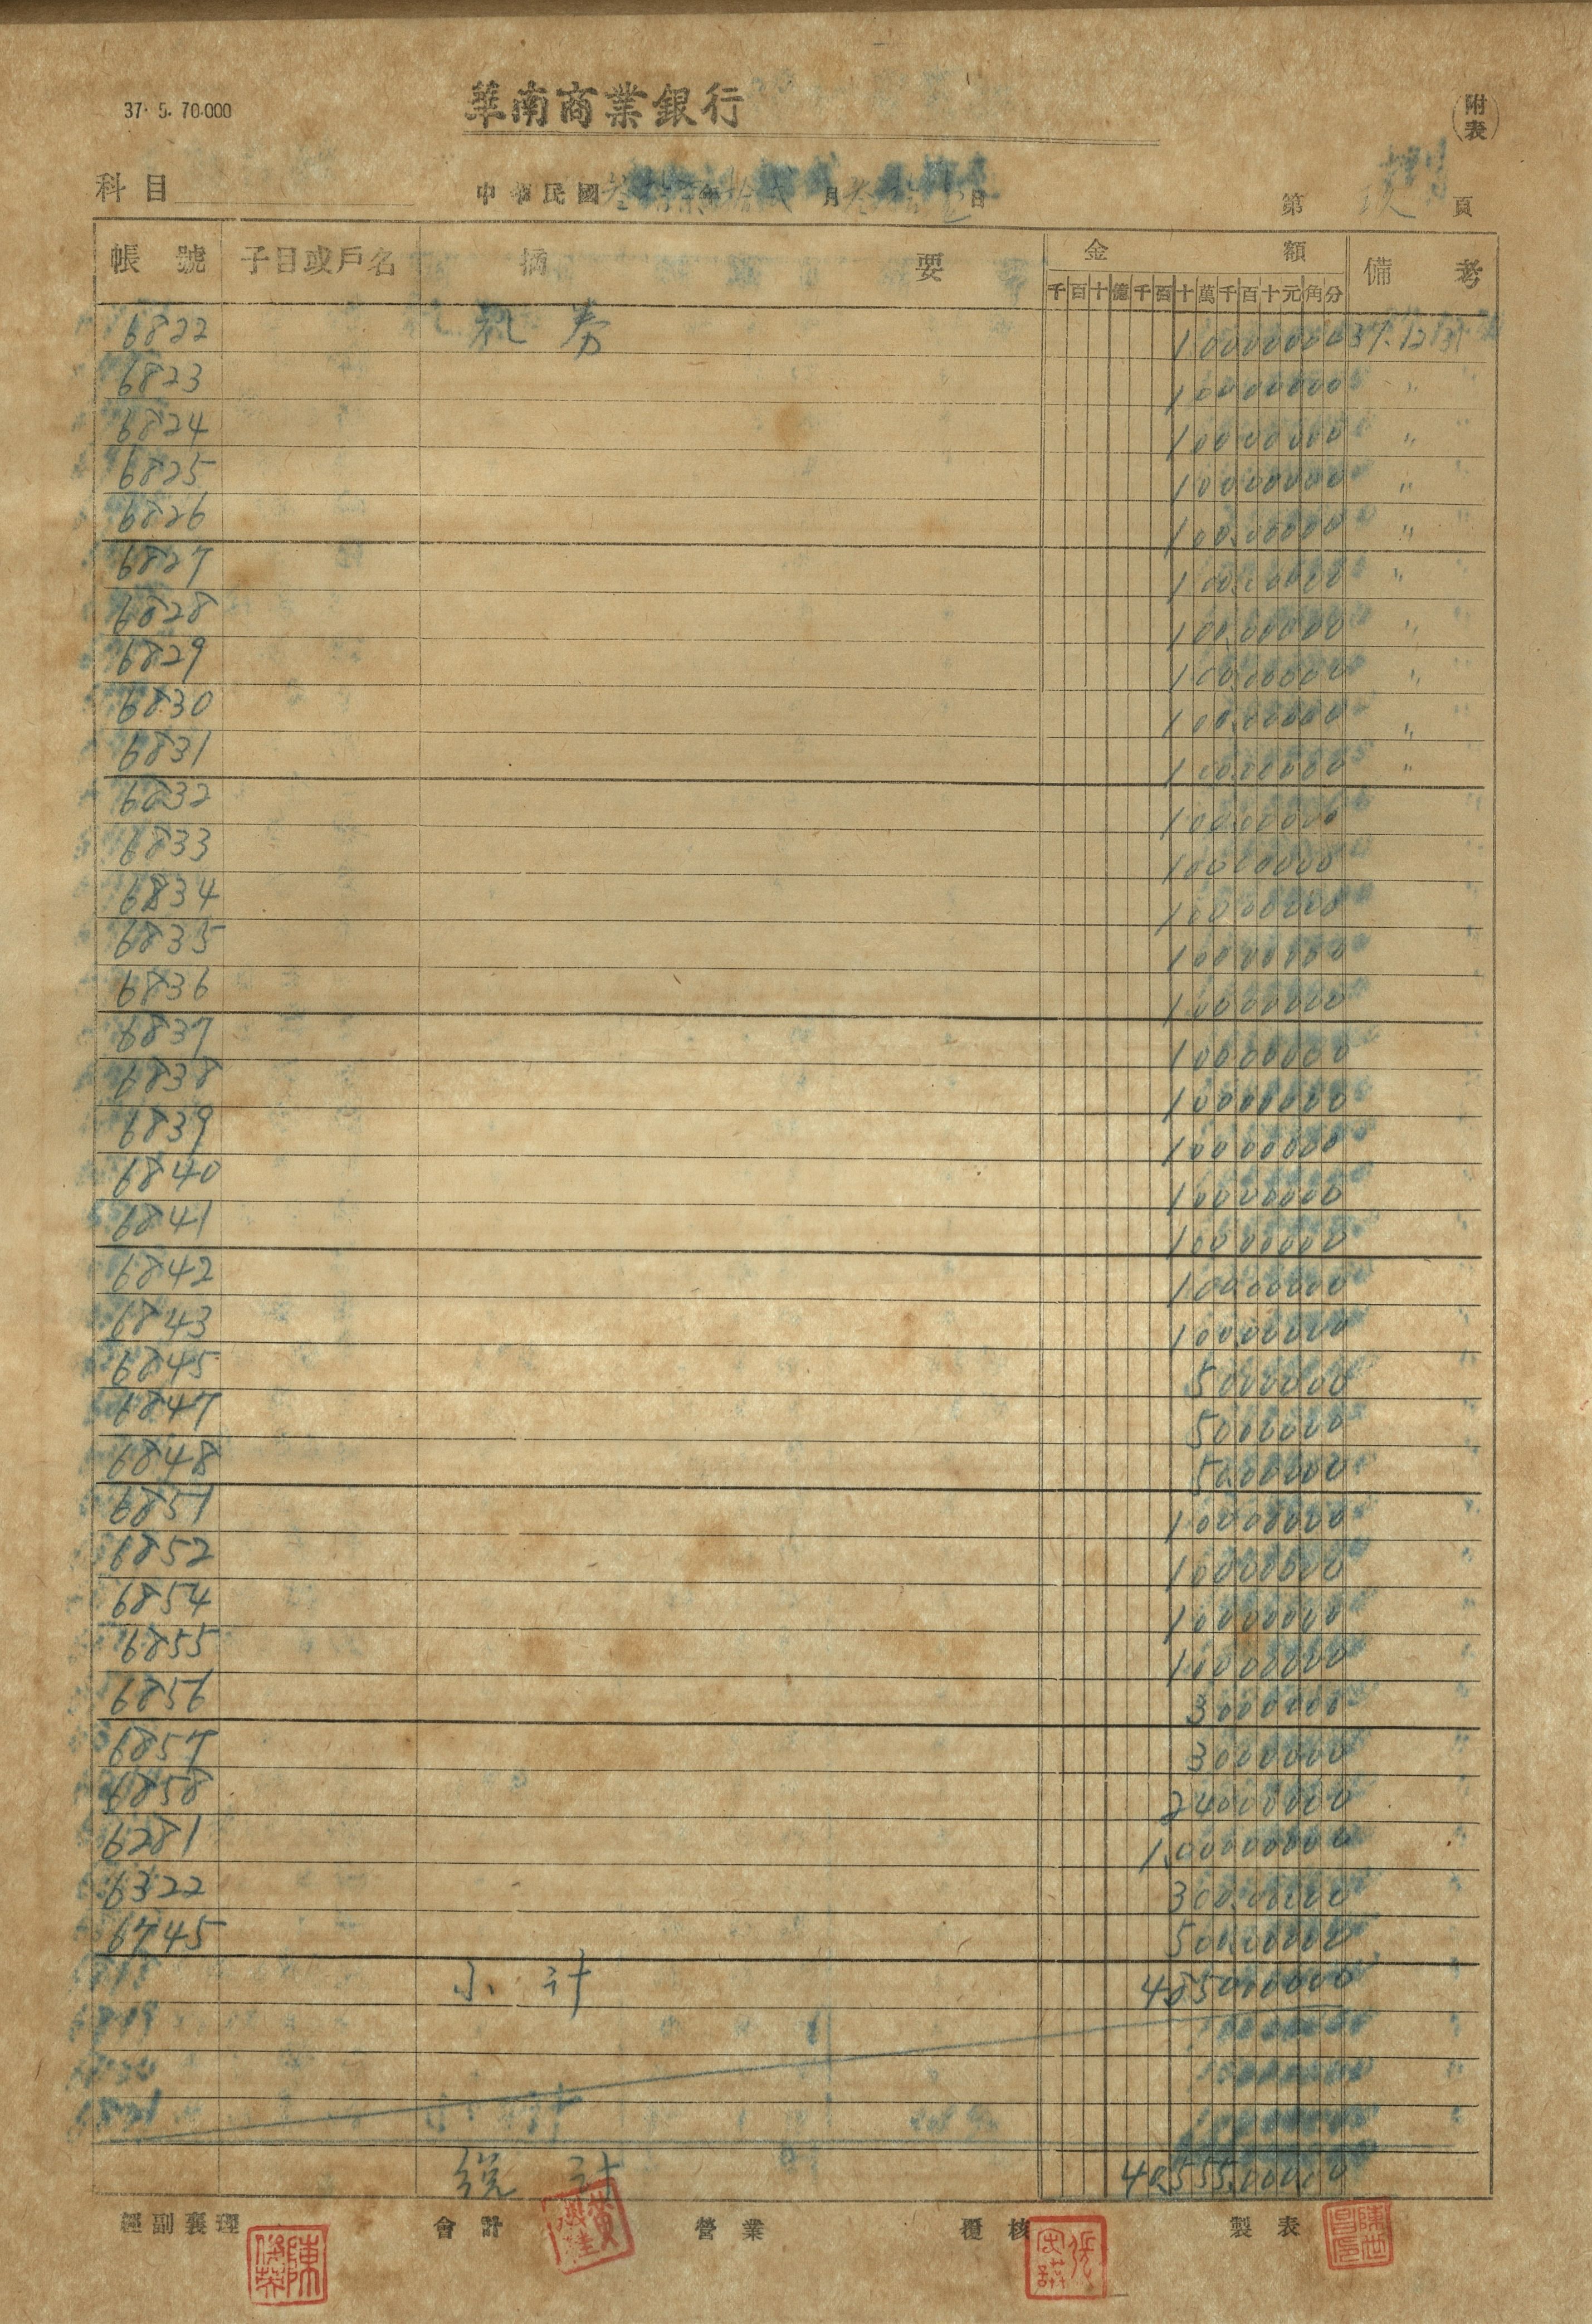 37. 5. 70.000
華南商業銀行
附表
科目
中華民國叁拾柒年拾弍月叁拾壹日
第 頁
帳號 子目或戶名 摘要 金額 備考
千百十億千百十萬千百十元角分
6822 礼券 100000.00 37.12.31
6823 100000.00 〃
6824 100000.00 〃
6825 100000.00 〃
6826 100000.00 〃
6827 100000.00 〃
6828 100000.00 〃
6829 100000.00 〃
6830 100000.00 〃
6831 100000.00 〃
6832 100000.00
6833 100000.00
6834 100000.00
6835 100000.00
6836 100000.00
6837 100000.00
6838 100000.00
6839 100000.00
6840 100000.00
6841 100000.00
6842 100000.00
6843 100000.00
6845 50000.00
6847 50000.00
6848 50000.00
6851 100000.00
6852 100000.00
6854 100000.00
6855 100000.00
6856 30000.00
6857 30000.00
6858 240000.00
6281 1,000000.00
6322 300000.00
6745 500000.00
小計 4850000.00
総計 40,555,000.00
經副襄理 會計 營業 覆核 製表